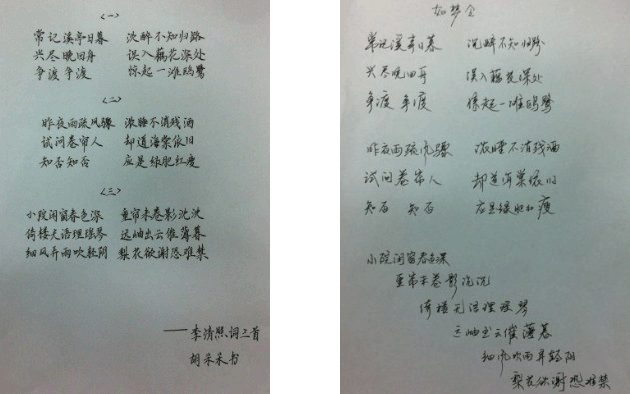 （一）
常记溪亭日暮 沈醉不知归路
兴尽晚回舟 误入藕花深处
争渡争渡 惊起一滩鸥鹭
（二）
昨夜雨疏风骤 浓睡不消残酒
试问卷帘人 却道海棠依旧
知否知否 应是绿肥红瘦
（三）
小院闲窗春色深 重帘未卷影沈沈
倚楼无语理瑶琴 远岫出云催薄暮
细风弄雨吹轻阴 梨花欲谢恐难禁
——李清照词三首
胡采采书
如梦令
常记溪亭日暮 沉醉不知归路
兴尽晚回舟 误入藕花深处
争渡 争渡 惊起一滩鸥鹭
昨夜雨疏风骤 浓睡不消残酒
试问卷帘人 却道海棠依旧
知否 知否 应是绿肥红瘦
小院闲窗春色深
重帘未卷影沉沉
倚楼无语理瑶琴
远岫出云催薄暮
细风吹雨弄轻阴
梨花欲谢恐难禁